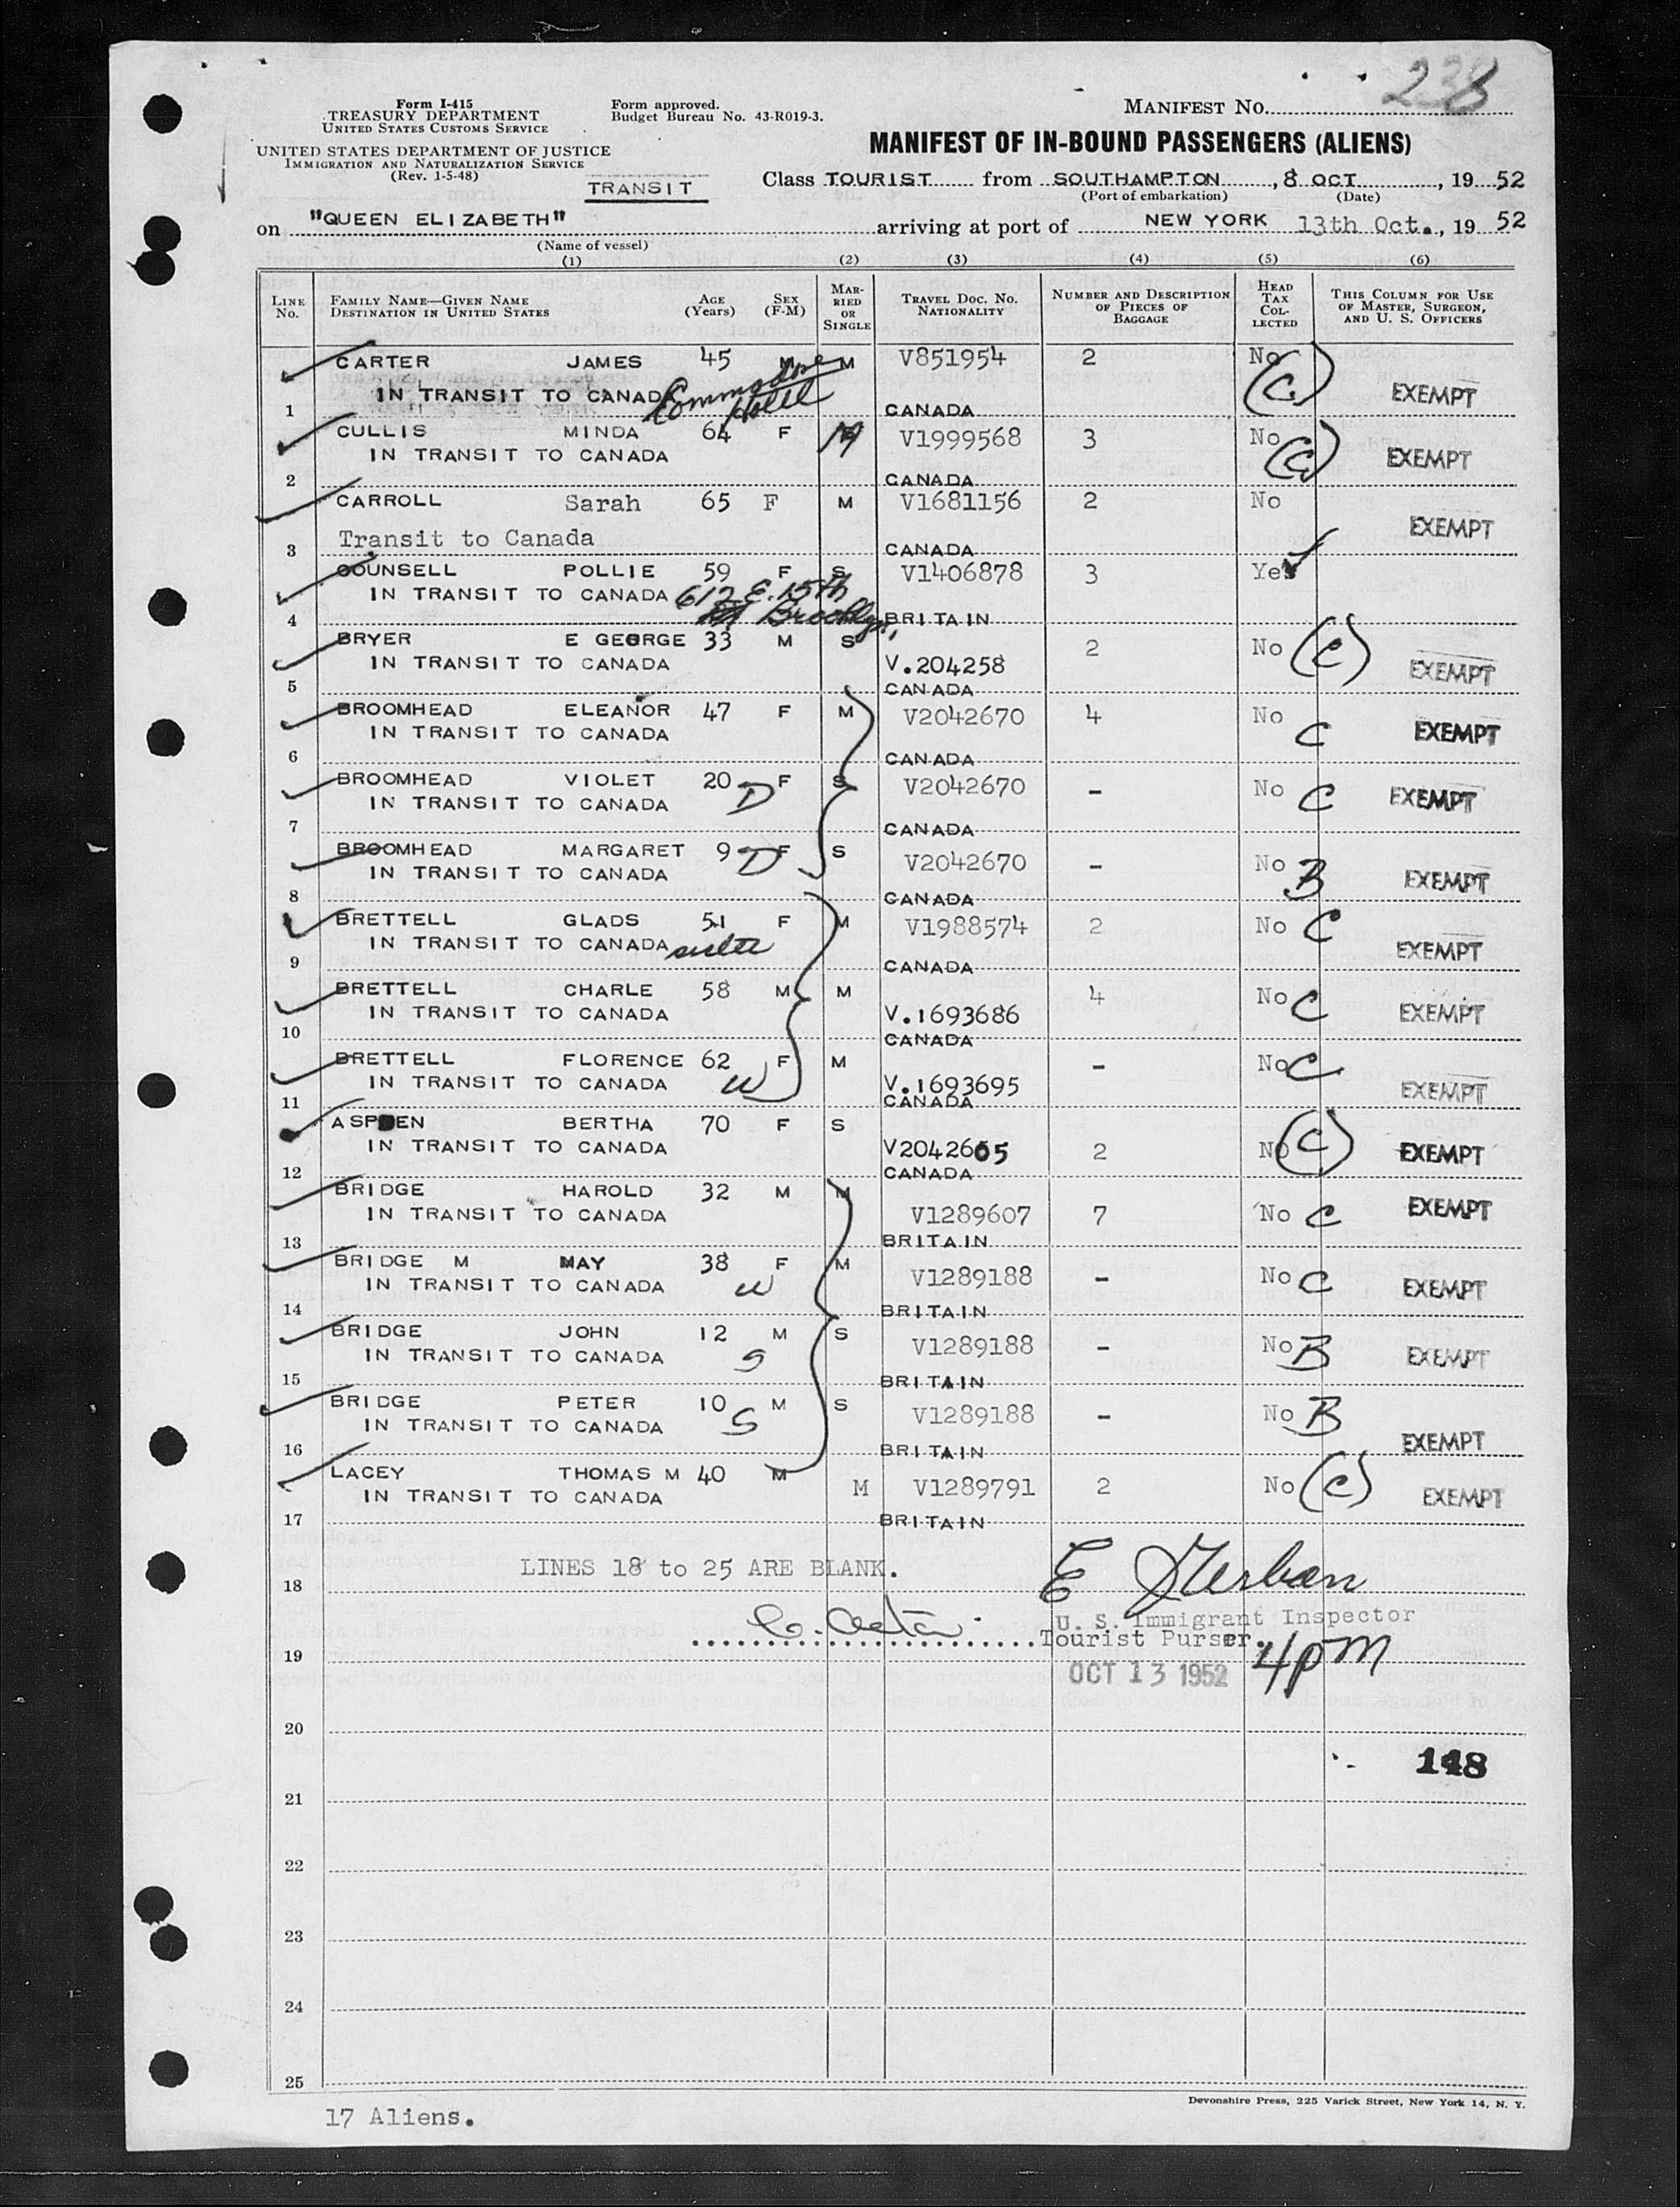 238
Form I-415
TREASURY DEPARTMENT
UNITED STATES CUSTOMS SERVICE
Form approved.
Budget Bureau No. 43-R019-3.
MANIFEST NO.
UNITED STATES DEPARTMENT OF JUSTICE
IMMIGRATION AND NATURALIZATION SERVICE
(Rev. 1-5-48)
MANIFEST OF IN-BOUND PASSENGERS (ALIENS)
TRANSIT
Class TOURIST from SOUTHAMPTON, 8 OCT, 19 52
(Port of embarkation) (Date)
on "QUEEN ELIZABETH" arriving at port of NEW YORK 13th Oct., 19 52
(Name of vessel)
(1) (2) (3) (4) (5) (6)
LINE No. FAMILY NAME—GIVEN NAME DESTINATION IN UNITED STATES AGE (Years) SEX (F-M) MARRIED OR SINGLE TRAVEL DOC. NO. NATIONALITY NUMBER AND DESCRIPTION OF PIECES OF BAGGAGE HEAD TAX COLLECTED THIS COLUMN FOR USE OF MASTER, SURGEON, AND U. S. OFFICERS
CARTER JAMES 45 M M V851954 2 No
IN TRANSIT TO CANADA Commodore Hotel (C) EXEMPT
1 CANADA
CULLIS MINDA 64 F M V1999568 3 No
IN TRANSIT TO CANADA (C) EXEMPT
2 CANADA
CARROLL Sarah 65 F M V1681156 2 No
EXEMPT
Transit to Canada
3 CANADA
COUNSELL POLLIE 59 F S V1406878 3 Yes
IN TRANSIT TO CANADA 612 E. 15th
4 Brooklyn, BRITAIN
BRYER E GEORGE 33 M S 2 No (C)
IN TRANSIT TO CANADA V.204258 EXEMPT
5 CANADA
BROOMHEAD ELEANOR 47 F M V2042670 4 No
IN TRANSIT TO CANADA C EXEMPT
6 CANADA
BROOMHEAD VIOLET 20 F S V2042670 - No C EXEMPT
IN TRANSIT TO CANADA D
7 CANADA
BROOMHEAD MARGARET 9 D F S V2042670 - No B EXEMPT
IN TRANSIT TO CANADA
8 CANADA
BRETTELL GLADS 51 F M V1988574 2 No C
IN TRANSIT TO CANADA EXEMPT
9 CANADA
BRETTELL CHARLE 58 M M 4 No C
IN TRANSIT TO CANADA V.1693686 EXEMPT
10 CANADA
BRETTELL FLORENCE 62 F M - No C
IN TRANSIT TO CANADA W V.1693695 EXEMPT
11 CANADA
ASPDEN BERTHA 70 F S
IN TRANSIT TO CANADA V2042605 2 No (C) EXEMPT
12 CANADA
BRIDGE HAROLD 32 M M
IN TRANSIT TO CANADA V1289607 7 No C EXEMPT
13 BRITAIN
BRIDGE M MAY 38 F M V1289188 - No C EXEMPT
IN TRANSIT TO CANADA W
14 BRITAIN
BRIDGE JOHN 12 M S V1289188 - No B EXEMPT
IN TRANSIT TO CANADA S
15 BRITAIN
BRIDGE PETER 10 M S V1289188 - No B
IN TRANSIT TO CANADA S EXEMPT
16 BRITAIN
LACEY THOMAS M 40 M
IN TRANSIT TO CANADA M V1289791 2 No (C) EXEMPT
17 BRITAIN
LINES 18 to 25 ARE BLANK.
18
U. S. Immigrant Inspector
Tourist Purser.
19 OCT 13 1952 4pm
20
148
21
22
23
24
25
Devonshire Press, 225 Varick Street, New York 14, N. Y.
17 Aliens.